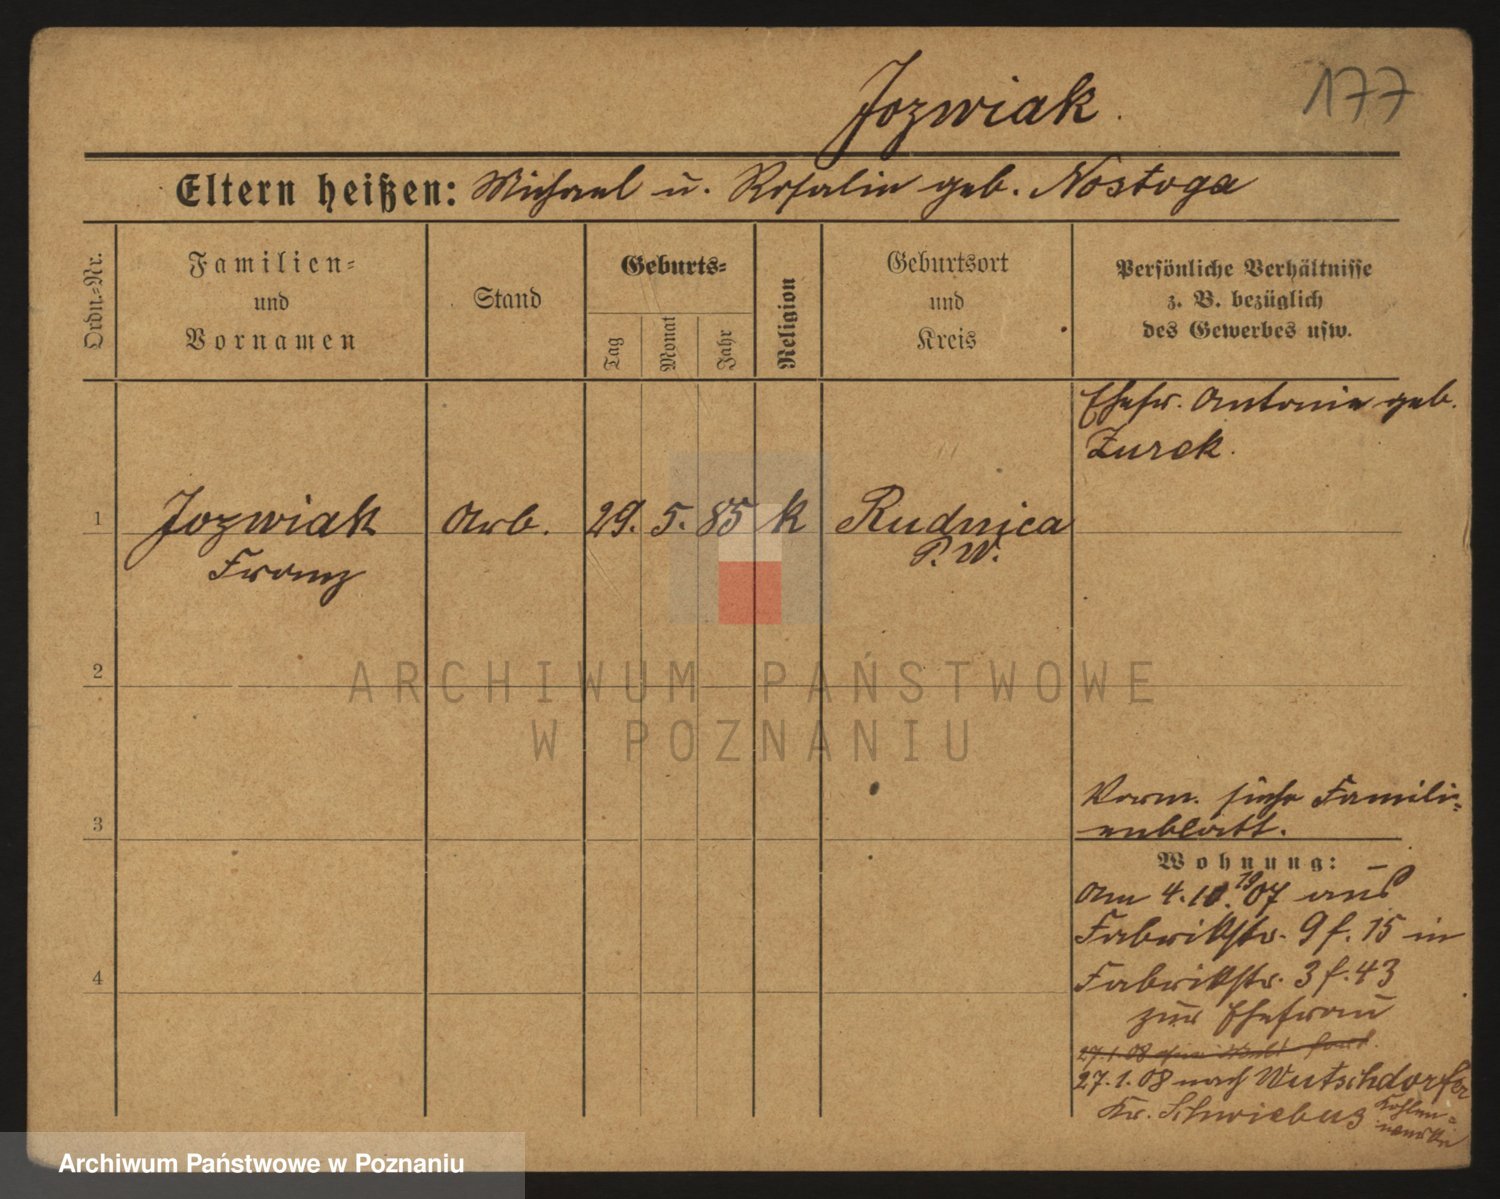 Jozwiak.
177
Eltern heißen: Michael u. Rosalie geb. Nostoga
Ordn.-Nr.
Familien-
und
Vornamen
Stand
Geburts-
Tag
Monat
Jahr
Religion
Geburtsort
und
Kreis
Persönliche Verhältnisse
z. B. bezüglich
des Gewerbes usw.
Ehefr. Antonie geb.
Zurek.
1 Jozwiak Arb. 29. 5. 85 k Rudnica
Franz P. W.
2
ARCHIWUM PAŃSTWOWE
W POZNANIU
Verm. siehe Famili-
enblatt.
3
Wohnung:
Am 4.10.1907 aus
Fabrikstr. 9 f. 15 in
Fabrikstr. 3 f. 43
4
zur Ehefrau
27.1.08
27.1.08 nach Wutschdorfer
Kr. Schwiebus Kohlen-
werke
Archiwum Państwowe w Poznaniu